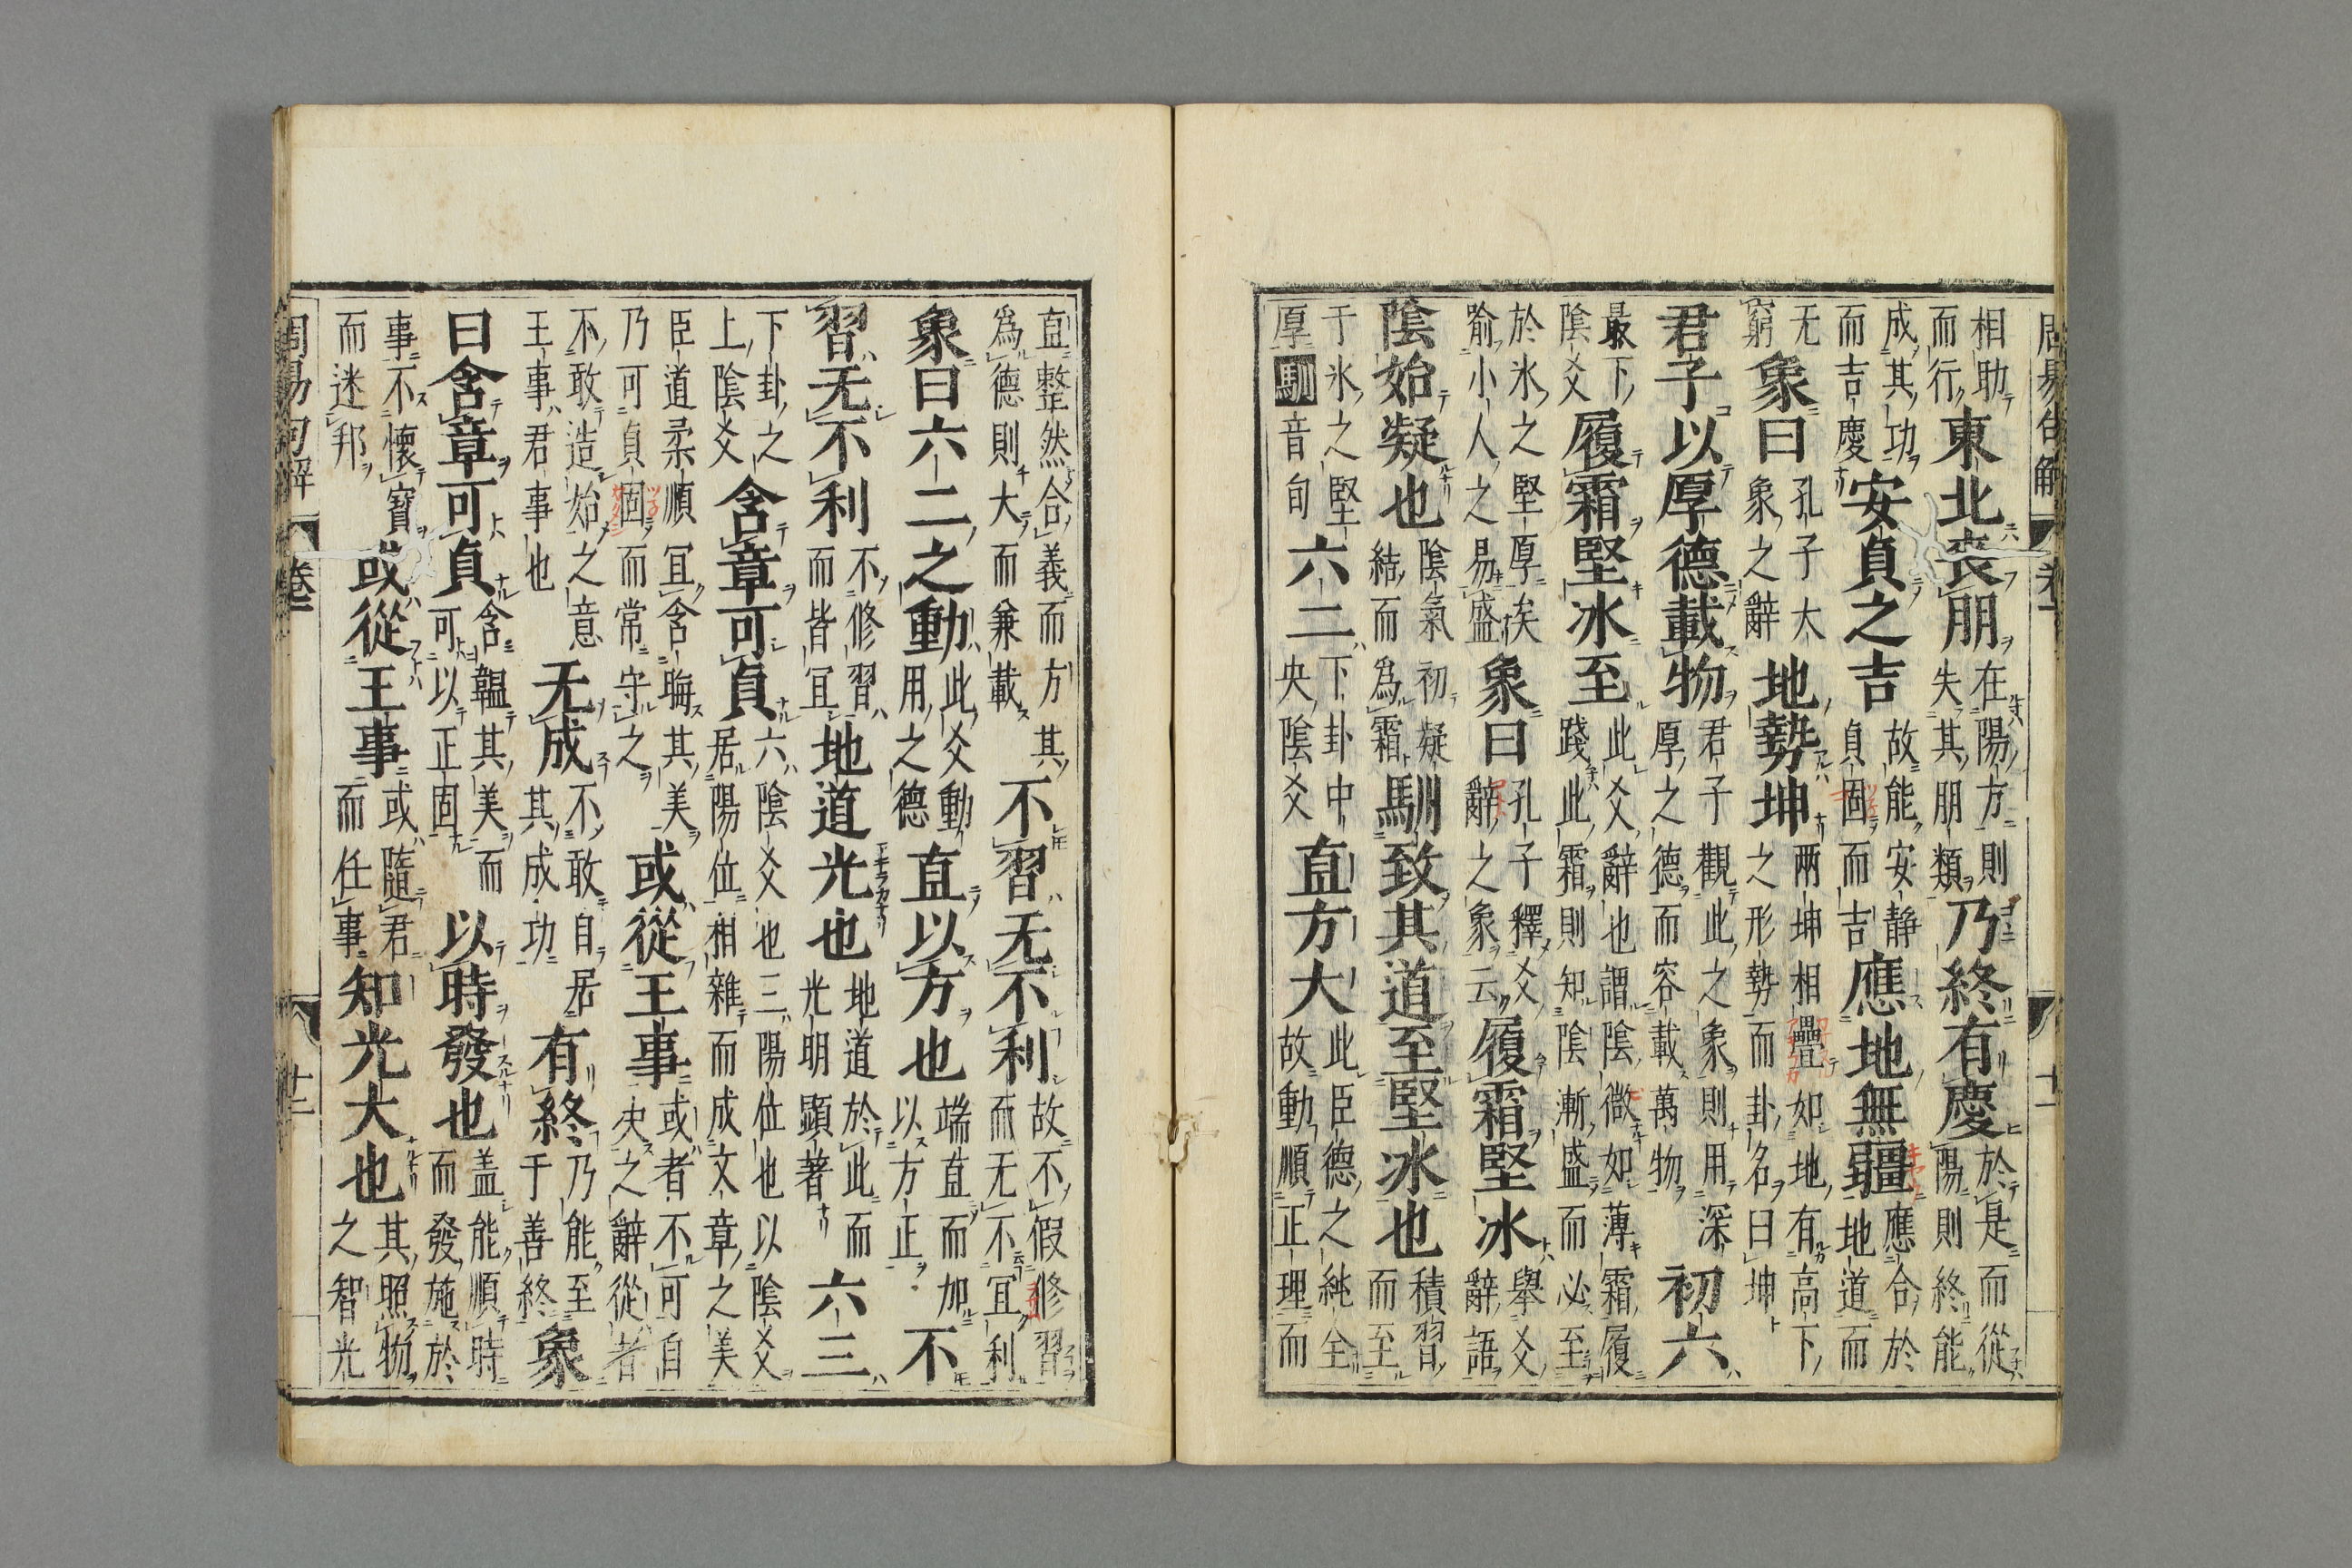 周易句解　卷一　十一
相助而行東北喪朋在陽方則失其朋類乃終有慶於是而從陽則終能
成其功而吉慶安貞之吉故能安静貞固而吉應地無疆應合於地道而
无窮象曰孔子大象之辭地勢坤兩坤相疊如地有高下之形勢而卦名曰坤
君子以厚德載物君子觀此之象則用深厚之德而容載萬物初六
最下陰爻履霜堅冰至此爻辭也謂陰微如薄霜履踐此霜則知陰漸盛而必至
於氷之堅厚矣喻小人之易盛象曰孔子釋爻辭之象云履霜堅冰舉爻辭語
陰始凝也陰氣初凝結而為霜馴致其道至堅冰也積習而至
于氷之堅厚馴音旬六二下卦中央陰爻直方大此臣德之純全故動順正理而
直整然合義而方其為德則大而兼載不習无不利故不假修習而无不宜利
象曰六二之動此爻動用之德直以方也端直而加以方正不
習无不利不修習而皆宜地道光也地道於此而光明顯著六三
下卦之上陰爻含章可貞六陰爻也三陽位也以陰爻居陽位相雜而成文章之美
臣道柔順宜含晦其美乃可貞固而常守之或從王事或者不可自決之辭從者
不敢造始之意王事君事也无成不敢自居其成功有終乃能至于善終象
曰含章可貞含韞其美而可以正固以時發也盖能順時而發施於
事不懷寶而迷邦或從王事或隨君而任事知光大也其照物之智光
周易句解　卷一　十二